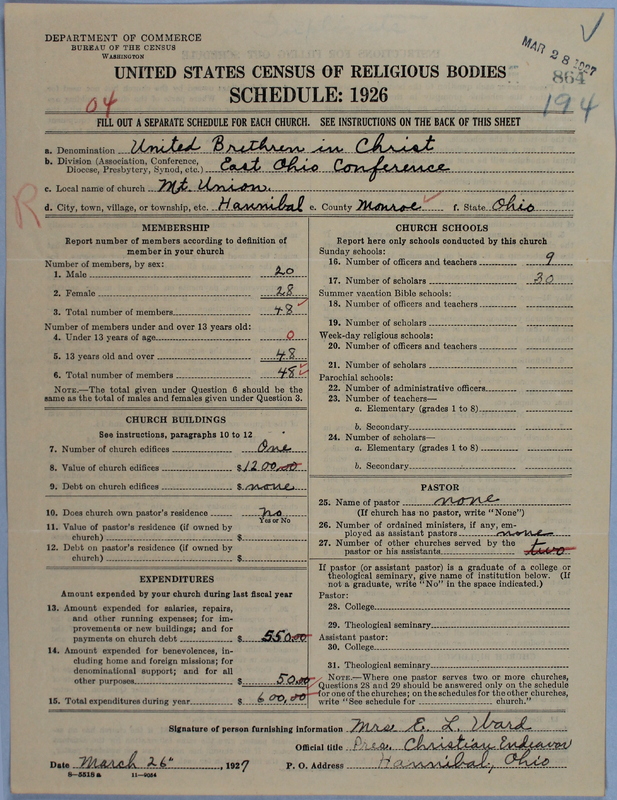 DEPARTMENT OF COMMERCE
BUREAU OF THE CENSUS
WASHINGTON
MAR 28 1927
864
194
UNITED STATES CENSUS OF RELIGIOUS BODIES
SCHEDULE: 1926
04
FILL OUT A SEPARATE SCHEDULE FOR EACH CHURCH. SEE INSTRUCTIONS ON THE BACK OF THIS SHEET
a. Denomination United Brethren in Christ
b. Division (Association, Conference, Diocese, Presbytery, Synod, etc.) East Ohio Conference
c. Local name of church Mt. Union.
R
d. City, town, village, or township, etc. Hannibal e. County Monroe f. State Ohio
MEMBERSHIP
Report number of members according to definition of
member in your church
Number of members, by sex:
1. Male 20
2. Female 28
3. Total number of members 48
Number of members under and over 13 years old:
4. Under 13 years of age 0
5. 13 years old and over 48
6. Total number of members 48
NOTE.—The total given under Question 6 should be
same as the total of males and females given under Question 3.
CHURCH BUILDINGS
See instructions, paragraphs 10 to 12
7. Number of church edifices One
8. Value of church edifices $1200.00
9. Debt on church edifices $ none
10. Does church own pastor's residence? no
Yes or No
11. Value of pastor's residence (if owned by
church) $
12. Debt on pastor's residence (if owned by
church) $
EXPENDITURES
Amount expended by your church during last fiscal year
13. Amount expended for salaries, repairs,
and other running expenses; for im-
provements or new buildings; and for
payments on church debt $ 550.00
14. Amount expended for benevolences, in-
cluding home and foreign missions; for
denominational support; and for all
other purposes $ 50.00
15. Total expenditures during year $ 600,00
CHURCH SCHOOLS
Report here only schools conducted by this church
Sunday schools:
16. Number of officers and teachers 9
17. Number of scholars 30
Summer vacation Bible schools:
18. Number of officers and teachers
19. Number of scholars
Week-day religious schools:
20. Number of officers and teachers
21. Number of scholars
Parochial schools:
22. Number of administrative officers
23. Number of teachers—
a. Elementary (grades 1 to 8)
b. Secondary
24. Number of scholars—
a. Elementary (grades 1 to 8)
b. Secondary
PASTOR
25. Name of pastor none
(If church has no pastor, write "None")
26. Number of ordained ministers, if any, em-
ployed as assistant pastors none
27. Number of other churches served by the
pastor or his assistants two
If pastor (or assistant pastor) is a graduate of a college or
theological seminary, give name of institution below. (If
not a graduate, write "No" in the space indicated.)
Pastor:
28. College
29. Theological seminary
Assistant pastor:
30. College
31. Theological seminary
NOTE.—Where one pastor serves two or more churches,
Questions 28 and 29 should be answered only on the schedule
for one of the churches; on the schedules for the other churches,
write "See schedule for church."
Signature of person furnishing information Mrs. E. L. Ward
Official title Pres. Christian Endeavor
Date March 26", 1927 P. O. Address Hannibal, Ohio
8—5518 a 11—9034